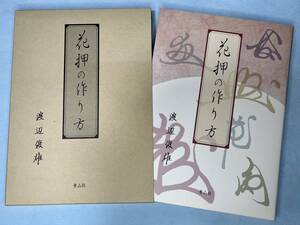 花押の作り方
渡辺俊雄
青山社
花押の作り方
渡辺俊雄
青山社